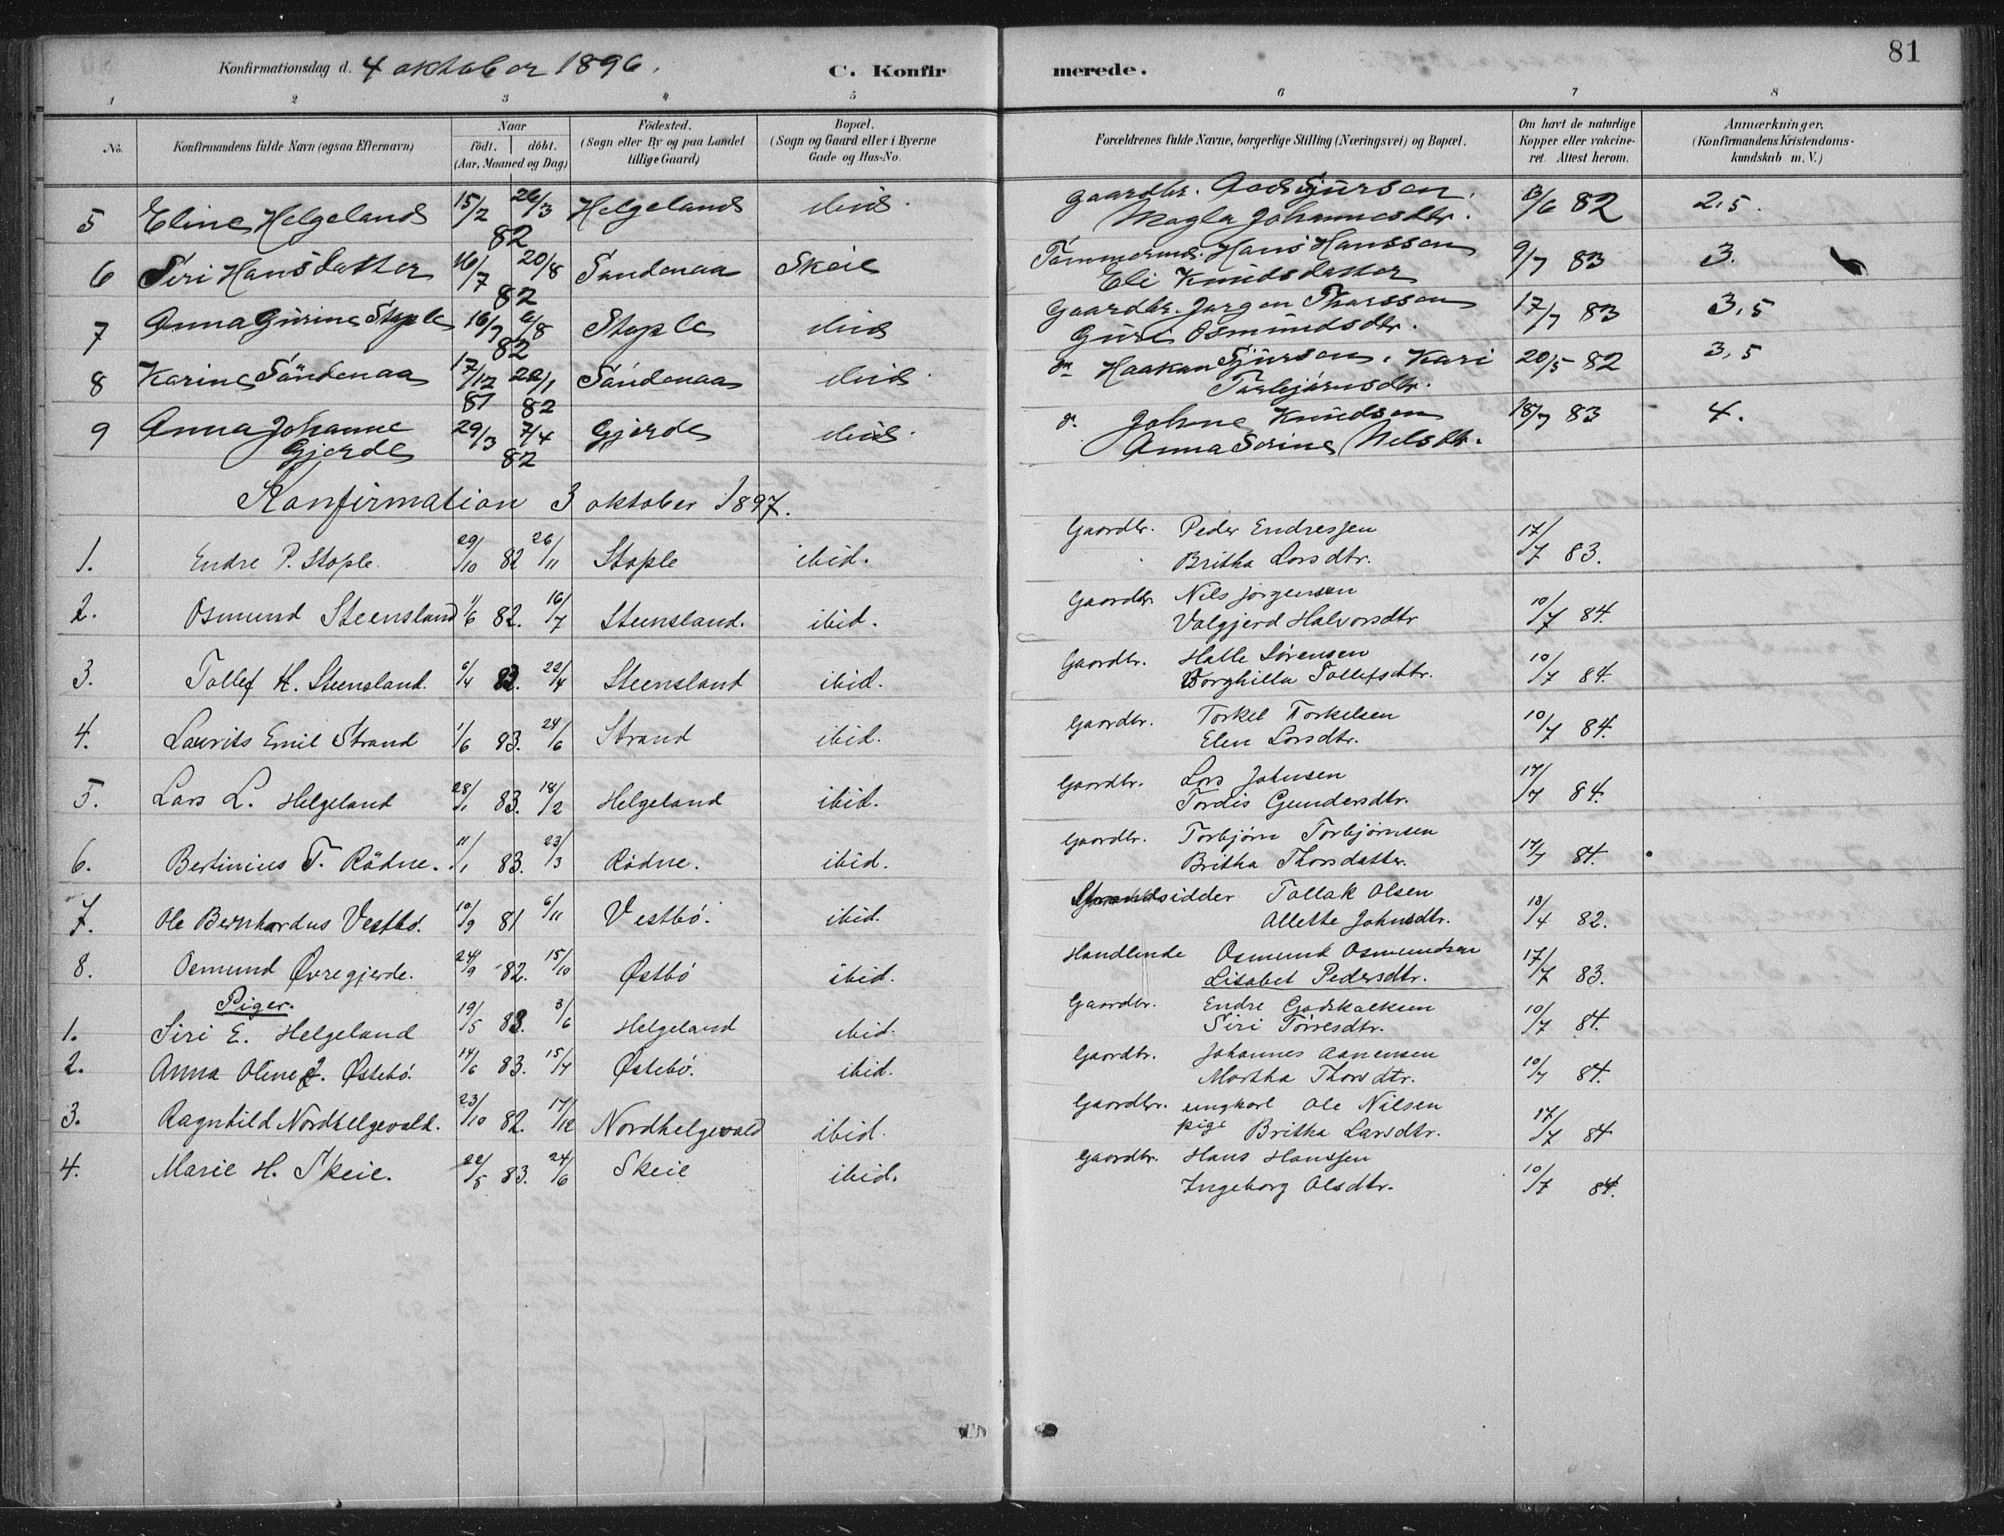 Konfirmationsdag d. 4 oktober 1896. C. Konfirmerede. 81
1 2 3 4 5 6 7 8
No. Konfirmandens fulde Navn (ogsaa Efternavn) Naar født. døbt. (Aar, Maaned og Dag) Fødested. (Sogn eller By og paa Landet tillige Gaard) Bopæl. (Sogn og Gaard eller i Byerne Gade og Hus-No. Forældrenes fulde Navne, borgerlige Stilling (Næringsvei) og Bopæl. Om havt de naturlige Kopper eller vakcineret. Attest herom. Anmærkninger. (Konfirmandens Kristendomskundskab m. V.)
5 Eline Helgeland 15/2 26/3 82 Helgeland ibid. Gaardbr. Sjursen Magla Johannesdtr. 13/6 82 2,5.
6 Siri Hansdatter 16/7 20/8 82 Sandenaa Skeie Tømmermd. Hans Hanssen Eli Knudsdatter 9/7 83 3.
7 Anna Gurine Stople 16/7 6/8 82 Stople ibid Gaardbr. Jørgen Thorssen Guri Osmundsdtr. 17/7 83 3,5
8 Karine Sandenaa 17/12 81 22/1 82 Sandenaa ibid. do Haakon Sjursen, Kari Torbjørnsdtr. 20/5 82 3,5
9 Anna Johanne Gjerde 29/3 7/4 82 Gjerde ibid. do. Johne Knudsen Anna Serine Nelsdtr. 18/7 83 4.
Konfirmation 3 oktober 1897.
1. Endre P. Stople. 29/10 82 26/11 Stople ibid. Gaardbr. Peder Endressen Britha Larsdtr. 17/7 83.
2. Osmund Steensland 11/6 82. 16/7 Steensland. ibid. Gaardbr. Nils Jørgensen Valgjerd Halvorsdtr 10/7 84.
3. Tollef H. Steensland. 6/4 83. 22/4 Steensland ibid. Gaardbr. Halle Sørensen Borghilla Tollefsdtr. 10/7 84.
4. Laurits Emil Strand 1/6 83. 24/6 Strand ibid. Gaardbr. Torkel Torkelsen Elen Larsdtr. 10/7 84.
5. Lars L. Helgeland 28/1 83. 18/2 Helgeland ibid. Gaardbr. Lars Johnsen Tordis Gundersdtr. 17/7 84.
6. Bertinius T. Rödne. 11/1 83. 23/3 Rödne. ibid. Gaardbr. Torbjørn Torbjørnsen Britha Thorsdatter. 17/7 84.
7. Ole Bernhardus Vestbö. 10/9 81 6/11 Vestbö. ibid. Strandsidder Tollak Olsen Allette Johnsdtr. 18/4 82.
8. Osmund Øvregjerde. 24/9 82. 15/10 Østbö ibid. Handlende Osmund Osmundsen Lisabet Pedersdtr. 17/7 83.
Piger.
1. Siri E. Helgeland 19/5 83. 3/6 Helgeland ibid. Gaardbr. Endre Godskalksen Siri Tørresdtr. 10/7 84.
2. Anna Oline J. Østebö. 14/6 83. 15/7 Østebö. ibid. Gaardbr. Johannes Aanensen Martha Thorsdtr. 10/7 84.
3. Ragnhild Nordhelgevald. 23/10 82. 17/12 Nordhelgevald ibid. Gaardbr. ungkarl Ole Nilsen pige Britha Larsdtr. 17/7 84
4. Marie H. Skeie. 22/5 83. 24/6 Skeie ibid. Gaardbr. Hans Hanssen Ingeborg Olsdtr. 10/7 84.